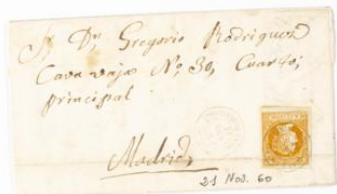 Sr. Dn. Gregorio Rodriguez
Cava vaja Nº 30, Cuarto,
principal
Madrid
21 Nov. 60